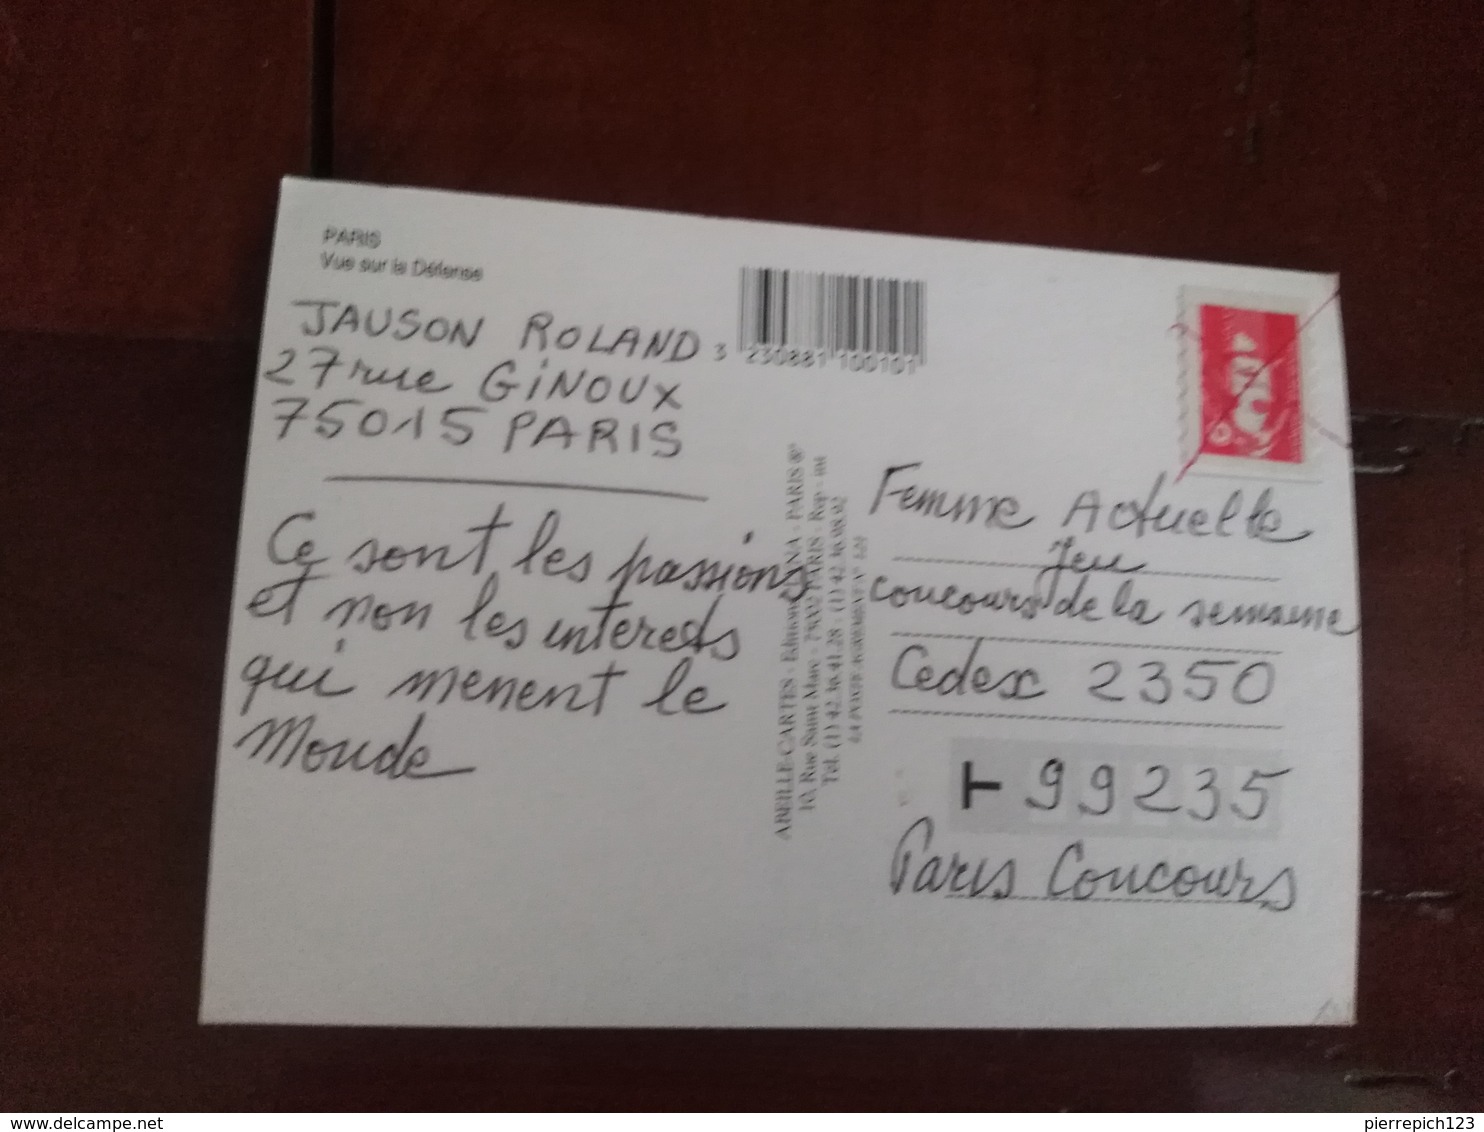 PARIS
Vue sur la Défense
JAUSON ROLAND
27 rue GiNOUX
75015 PARIS
Ce sont les passions
et non les interets
qui menent le
Monde
3 230881 100101
ABEILLE-CARTES - Editions - PARIS 8°
10, Rue Saint Marc - 75002 PARIS - Rep - int
Tél. (1) 42.36.41.28 - (1) 42.36.98.92
Femme Actuelle
Jeu
concours de la semaine
Cedex 2350
T 99235
Paris Concours
www.delcampe.net
pierrepich123